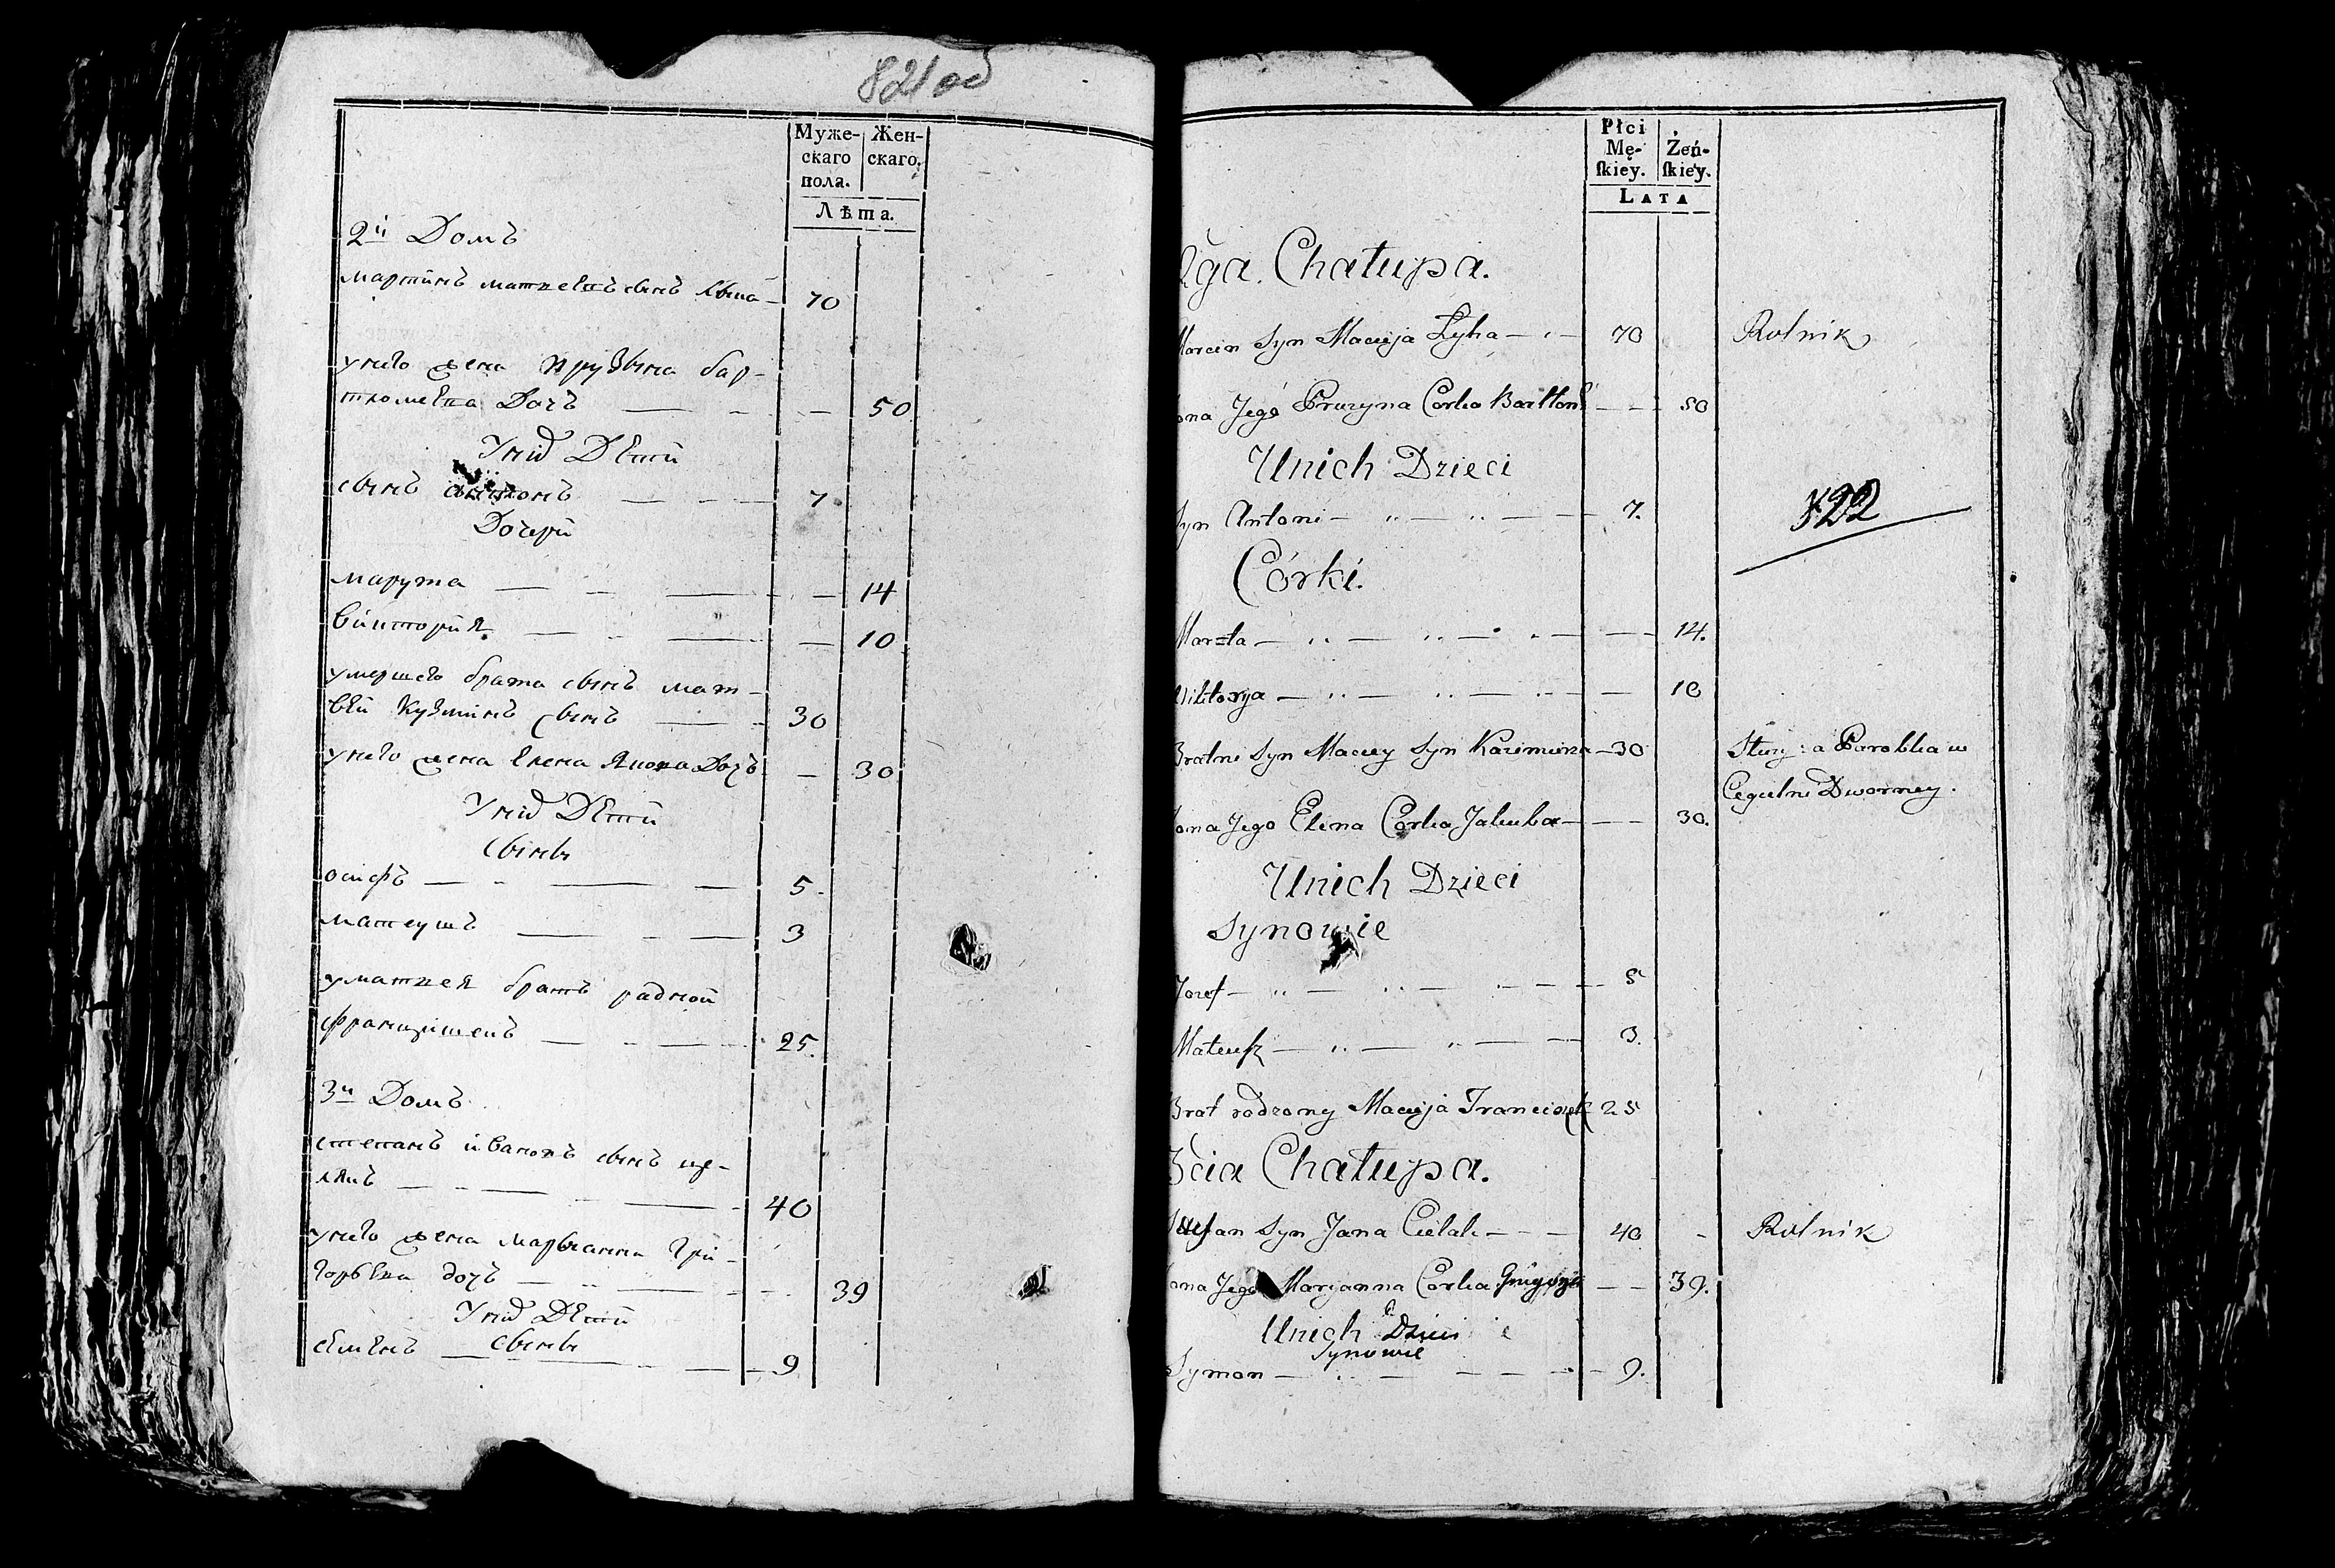 821 об
Муже- Жен-
скаго скаго.
пола.
Лѣта.
2й Домъ
мартинъ матвевъ сынъ лыка 70
у него жена прузына бар-
тломѣева Дочь 50
У нихъ Дѣти
сынъ антонъ 7
Дочери
марута 14
виктория 10
умершего брата сынъ мат-
вѣй Кузминъ сынъ 30
у него жена елена Якова Дочь 30
У нихъ Дѣти
сыны
осифъ 5
матеушъ 3
у матвея братъ радной
францишекъ 25
3й Домъ
степанъ ивановъ сынъ це-
лякъ 40
у него жена марьянна гри-
горьева дочь 39
У нихъ Дѣти
сыны
семенъ 9
Płci
Mę- Żeń-
ſkiey. ſkiey.
LATA
2ga. Chałupa.
Marcin Syn Macieja Łyka 70 Rolnik
Żona Jego Pruzyna Corka Bartłom 50
Unich Dzieci
Syn Antoni 7.
822
Córki.
Maruta 14.
Wiktorya 10
Bratni Syn Maciey Syn Kazimierza 30 Służy za Parobka w
Cegielni Dworney.
Żona Jego Elena Corka Jakuba 30.
Unich Dzieci
Synowie
Jozef 5
Mateuſz 3.
Brat rodzony Macieja Franciszek 25
3cia Chałupa.
Stefan Syn Jana Cielak 40 Rolnik
Żona Jego Maryanna Corka Grigorja 39.
Unich Dzieci
Synowie
Symon 9.